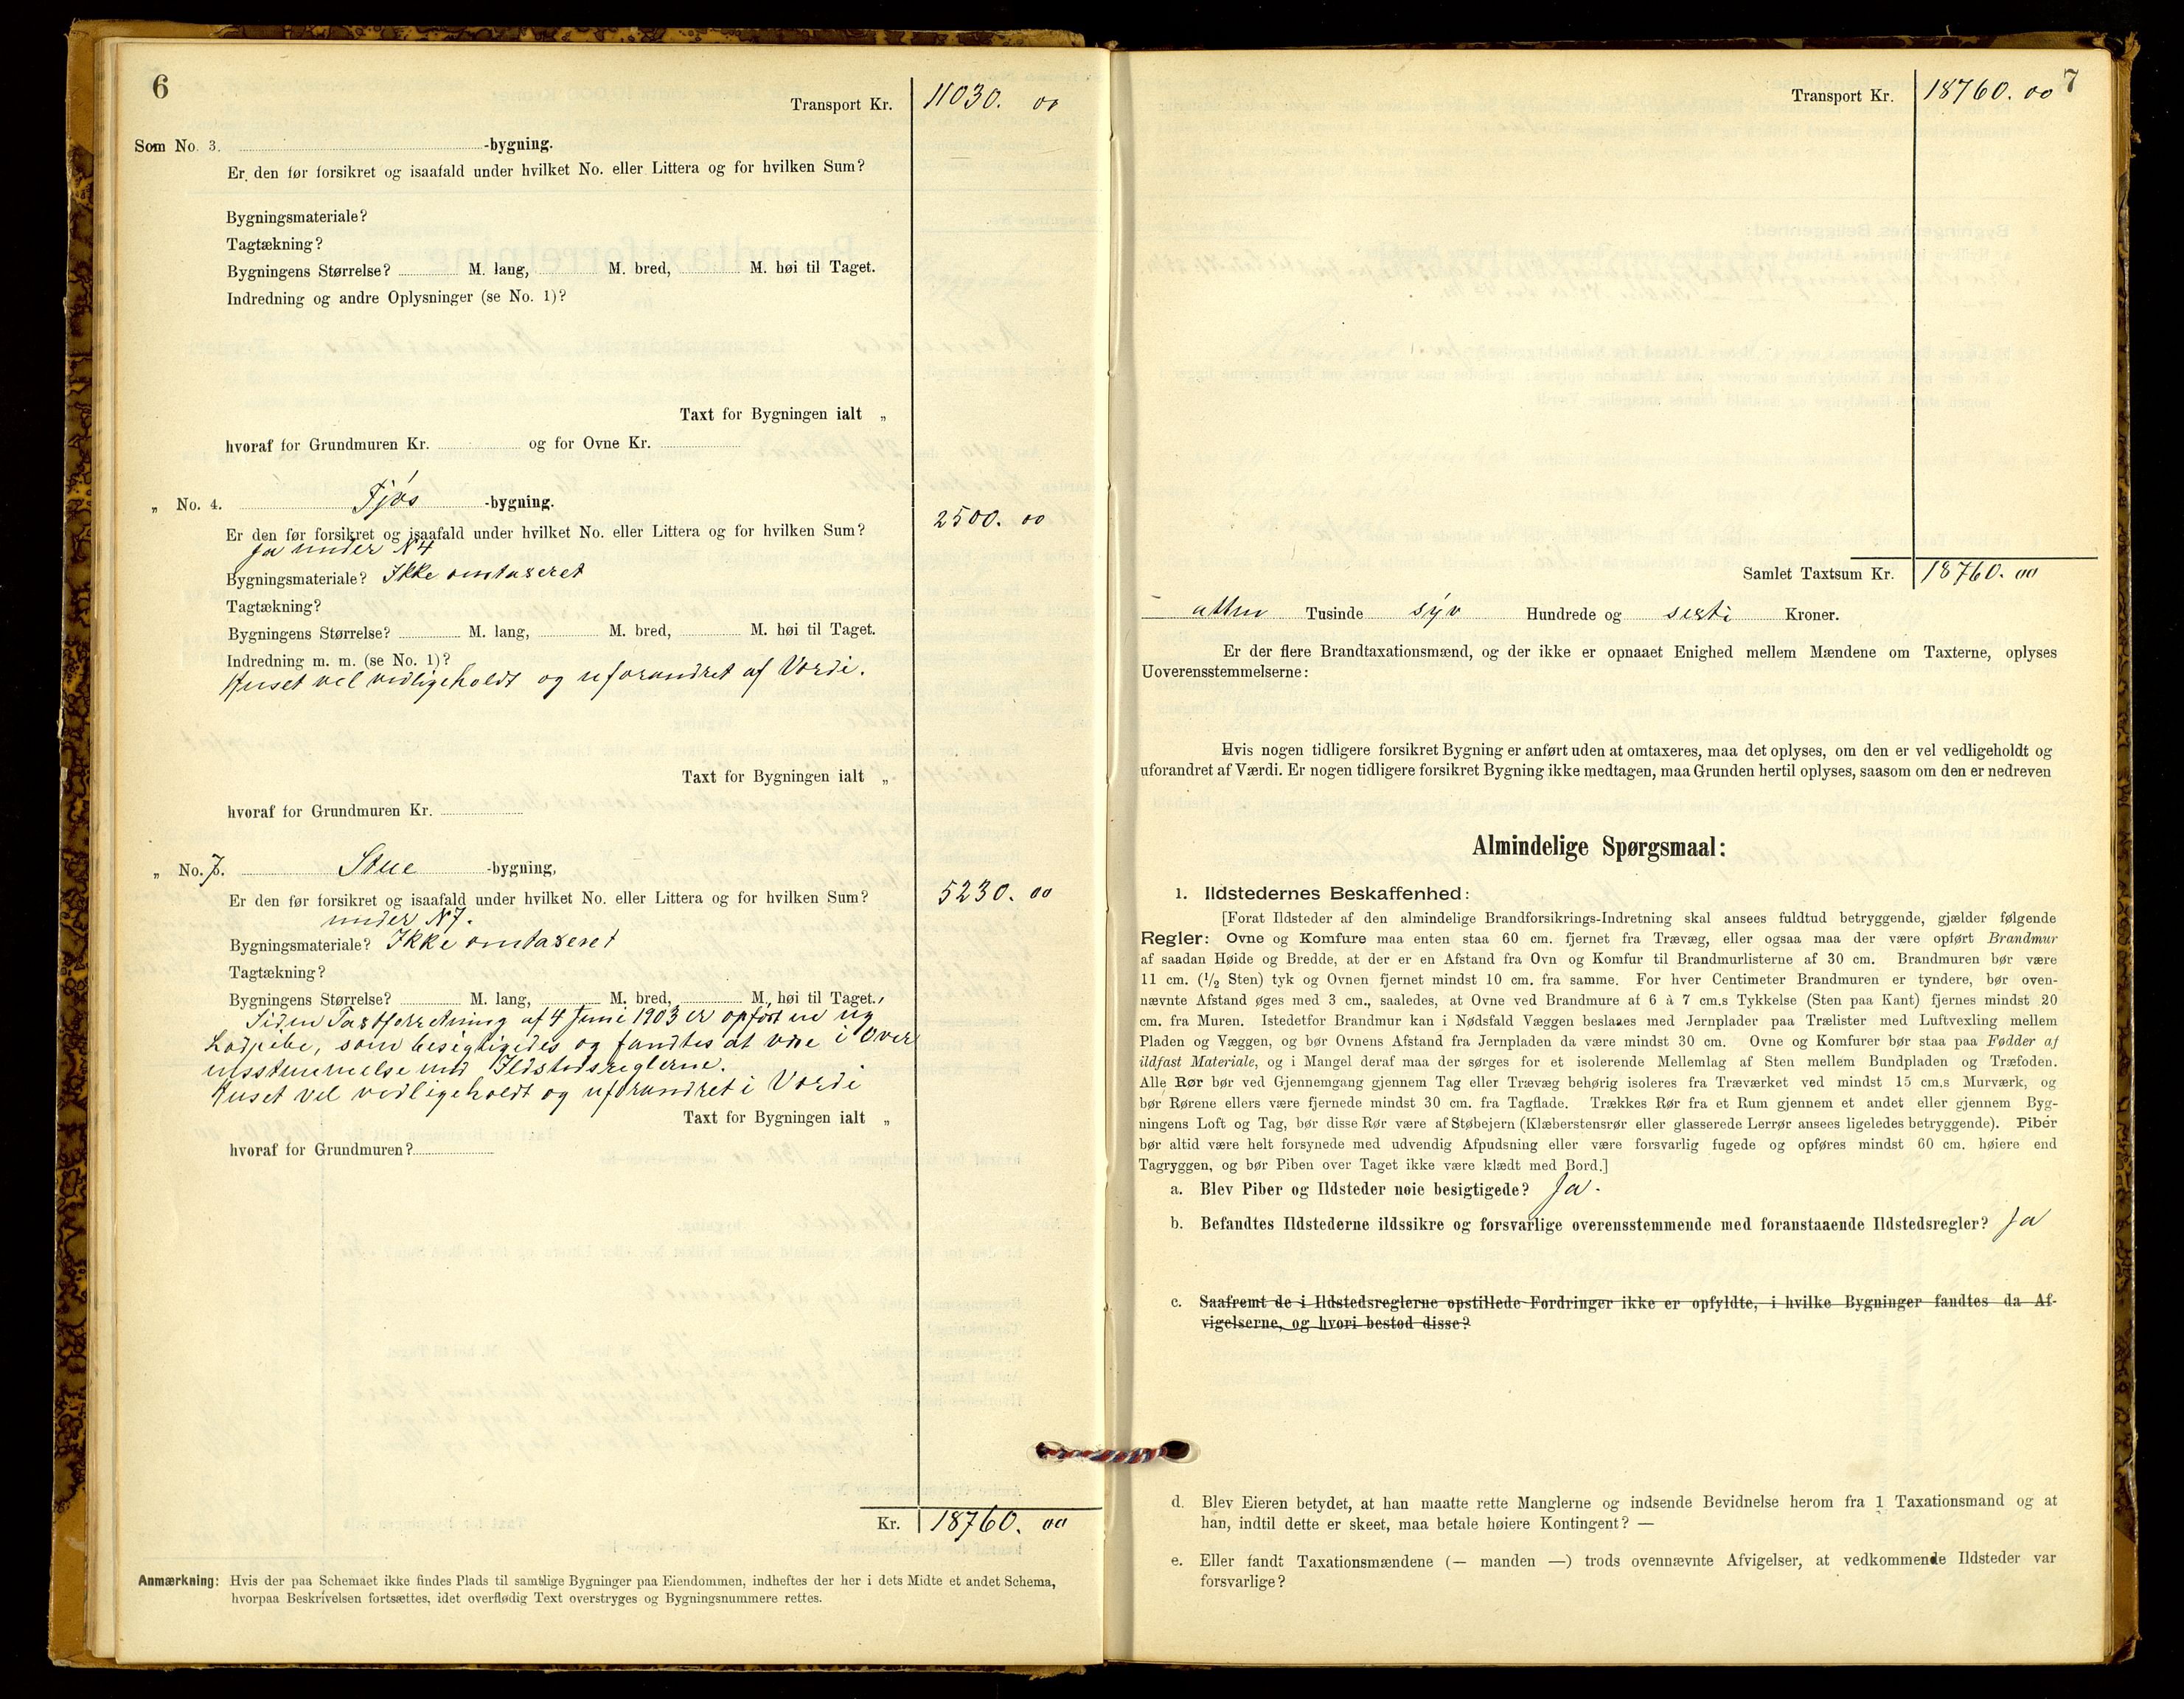 6
Transport Kr. 11030. 00
Som No. 3. -bygning.
Er den før forsikret og isaafald under hvilket No. eller Littera og for hvilken Sum?
Bygningsmateriale?
Tagtækning?
Bygningens Størrelse? M. lang, M. bred, M. høi til Taget.
Indredning og andre Oplysninger (se No. 1)?
Taxt for Bygningen ialt „
hvoraf for Grundmuren Kr. og for Ovne Kr.
„ No. 4. Fjøs -bygning.
Er den før forsikret og isaafald under hvilket No. eller Littera og for hvilken Sum? 2500. 00
Ja under N4
Bygningsmateriale? Ikke omtaxeret
Tagtækning?
Bygningens Størrelse? M. lang, M. bred, M. høi til Taget.
Indredning m. m. (se No. 1)?
Huset vel vedligeholdt og uforandret af Værdi.
Taxt for Bygningen ialt „
hvoraf for Grundmuren Kr.
„ No. 7. Stue -bygning,
Er den før forsikret og isaafald under hvilket No. eller Littera og for hvilken Sum? 5230. 00
under N7.
Bygningsmateriale? Ikke omtaxeret
Tagtækning?
Bygningens Størrelse? M. lang, M. bred, M. høi til Taget.
Siden Taxtforretning af 4 Juni 1903 er opført en ny
Lodpibe, som besigtigedes og fandtes at være i Over
ensstemmelse med Ildstedsreglerne.
Huset vel vedligeholdt og uforandret i Værdi
Taxt for Bygningen ialt „
hvoraf for Grundmuren?
Kr. 18760. 00
Anmærkning: Hvis der paa Schemaet ikke findes Plads til samtlige Bygninger paa Eiendommen, indheftes der her i dets Midte et andet Schema,
hvorpaa Beskrivelsen fortsættes, idet overflødig Text overstryges og Bygningsnummere rettes.
7
Transport Kr. 18760. 00
Samlet Taxtsum Kr. 18760. 00
atten Tusinde syv Hundrede og sexti Kroner.
Er der flere Brandtaxationsmænd, og der ikke er opnaaet Enighed mellem Mændene om Taxterne, oplyses
Uoverensstemmelserne:
Hvis nogen tidligere forsikret Bygning er anført uden at omtaxeres, maa det oplyses, om den er vel vedligeholdt og
uforandret af Værdi. Er nogen tidligere forsikret Bygning ikke medtagen, maa Grunden hertil oplyses, saasom om den er nedreven
Almindelige Spørgsmaal:
1. Ildstedernes Beskaffenhed:
[Forat Ildsteder af den almindelige Brandforsikrings-Indretning skal ansees fuldtud betryggende, gjælder følgende
Regler: Ovne og Komfure maa enten staa 60 cm. fjernet fra Trævæg, eller ogsaa maa der være opført Brandmur
af saadan Høide og Bredde, at der er en Afstand fra Ovn og Komfur til Brandmurlisterne af 30 cm. Brandmuren bør være
11 cm. (1/2 Sten) tyk og Ovnen fjernet mindst 10 cm. fra samme. For hver Centimeter Brandmuren er tyndere, bør oven-
nævnte Afstand øges med 3 cm., saaledes, at Ovne ved Brandmure af 6 à 7 cm.s Tykkelse (Sten paa Kant) fjernes mindst 20
cm. fra Muren. Istedetfor Brandmur kan i Nødsfald Væggen beslaaes med Jernplader paa Trælister med Luftvexling mellem
Pladen og Væggen, og bør Ovnens Afstand fra Jernpladen da være mindst 30 cm. Ovne og Komfurer bør staa paa Fødder af
ildfast Materiale, og i Mangel deraf maa der sørges for et isolerende Mellemlag af Sten mellem Bundpladen og Træfoden.
Alle Rør bør ved Gjennemgang gjennem Tag eller Trævæg behørig isoleres fra Træværket ved mindst 15 cm.s Murværk, og
bør Rørene ellers være fjernede mindst 30 cm. fra Tagflade. Trækkes Rør fra et Rum gjennem et andet eller gjennem Byg-
ningens Loft og Tag, bør disse Rør være af Støbejern (Klæberstensrør eller glasserede Lerrør ansees ligeledes betryggende). Piber
bør altid være helt forsynede med udvendig Afpudsning eller være forsvarlig fugede og opføres mindst 60 cm. høiere end
Tagryggen, og bør Piben over Taget ikke være klædt med Bord.]
a. Blev Piber og Ildsteder nøie besigtigede? Ja.
b. Befandtes Ildstederne ildssikre og forsvarlige overensstemmende med foranstaaende Ildstedsregler? Ja
c. Saafremt de i Ildstedsreglerne opstillede Fordringer ikke er opfyldte, i hvilke Bygninger fandtes da Af-
vigelserne, og hvori bestod disse?
d. Blev Eieren betydet, at han maatte rette Manglerne og indsende Bevidnelse herom fra 1 Taxationsmand og at
han, indtil dette er skeet, maa betale høiere Kontingent? —
e. Eller fandt Taxationsmændene (— manden —) trods ovennævnte Afvigelser, at vedkommende Ildsteder var
forsvarlige?